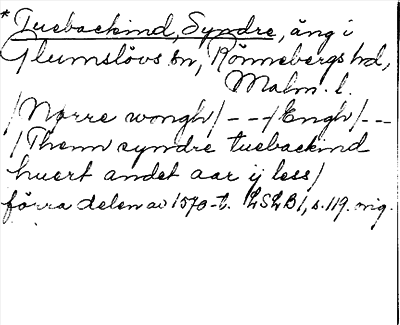 *Tuebackind, Syndre, äng i
Glumslövs sn, Rönnebergs hd,
Malm. l.
/Nørre wongh/ - - -/Engh/ - - -
/Thenn syndre tuebackind
huert andet aar ij less/
förra delen av 1570-t. LSLB1, s. 119. orig.